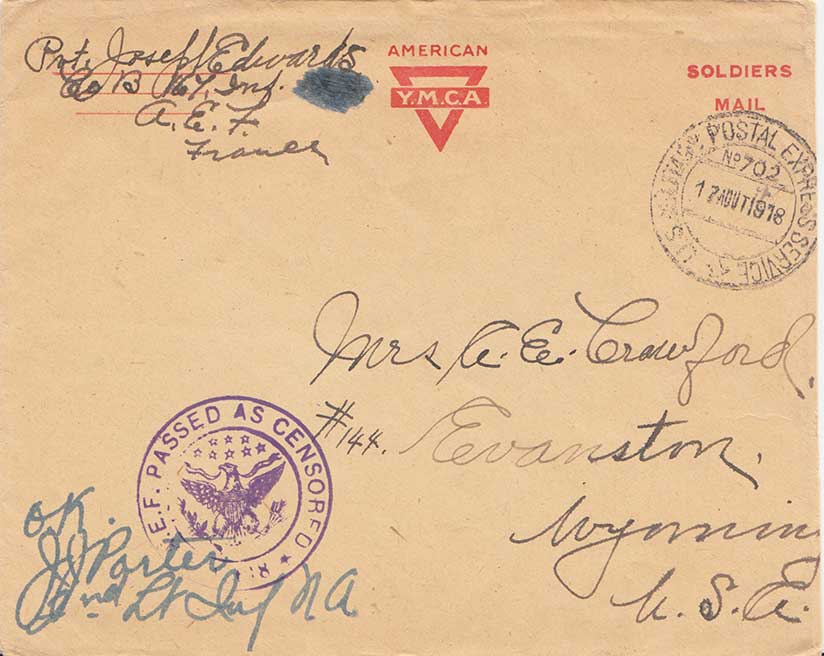 Pvt. Joseph Edwards
Co B 164, Inf.
A. E. F.
France
AMERICAN
Y.M.C.A.
SOLDIERS
MAIL
U.S. ARMY. POSTAL EXPRESS SERVICE
No 702
17 AOUT 1918
Mrs A. E. Crawford.
#144. Evanston,
Wyoming
U. S. A.
E.F. PASSED AS CENSORED
O.K.
J J Porter
2nd Lt Inf N A